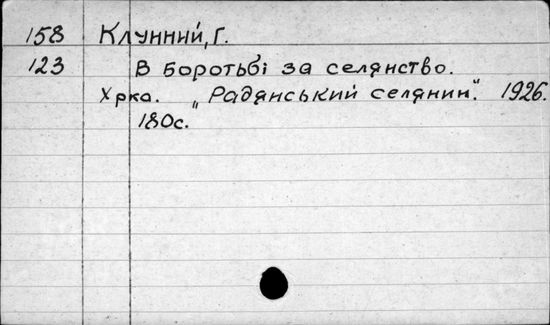 158 Клунний, Г.
123 В боротьбі за селянство.
Хрка. „Радянський селянин". 1926.
180с.